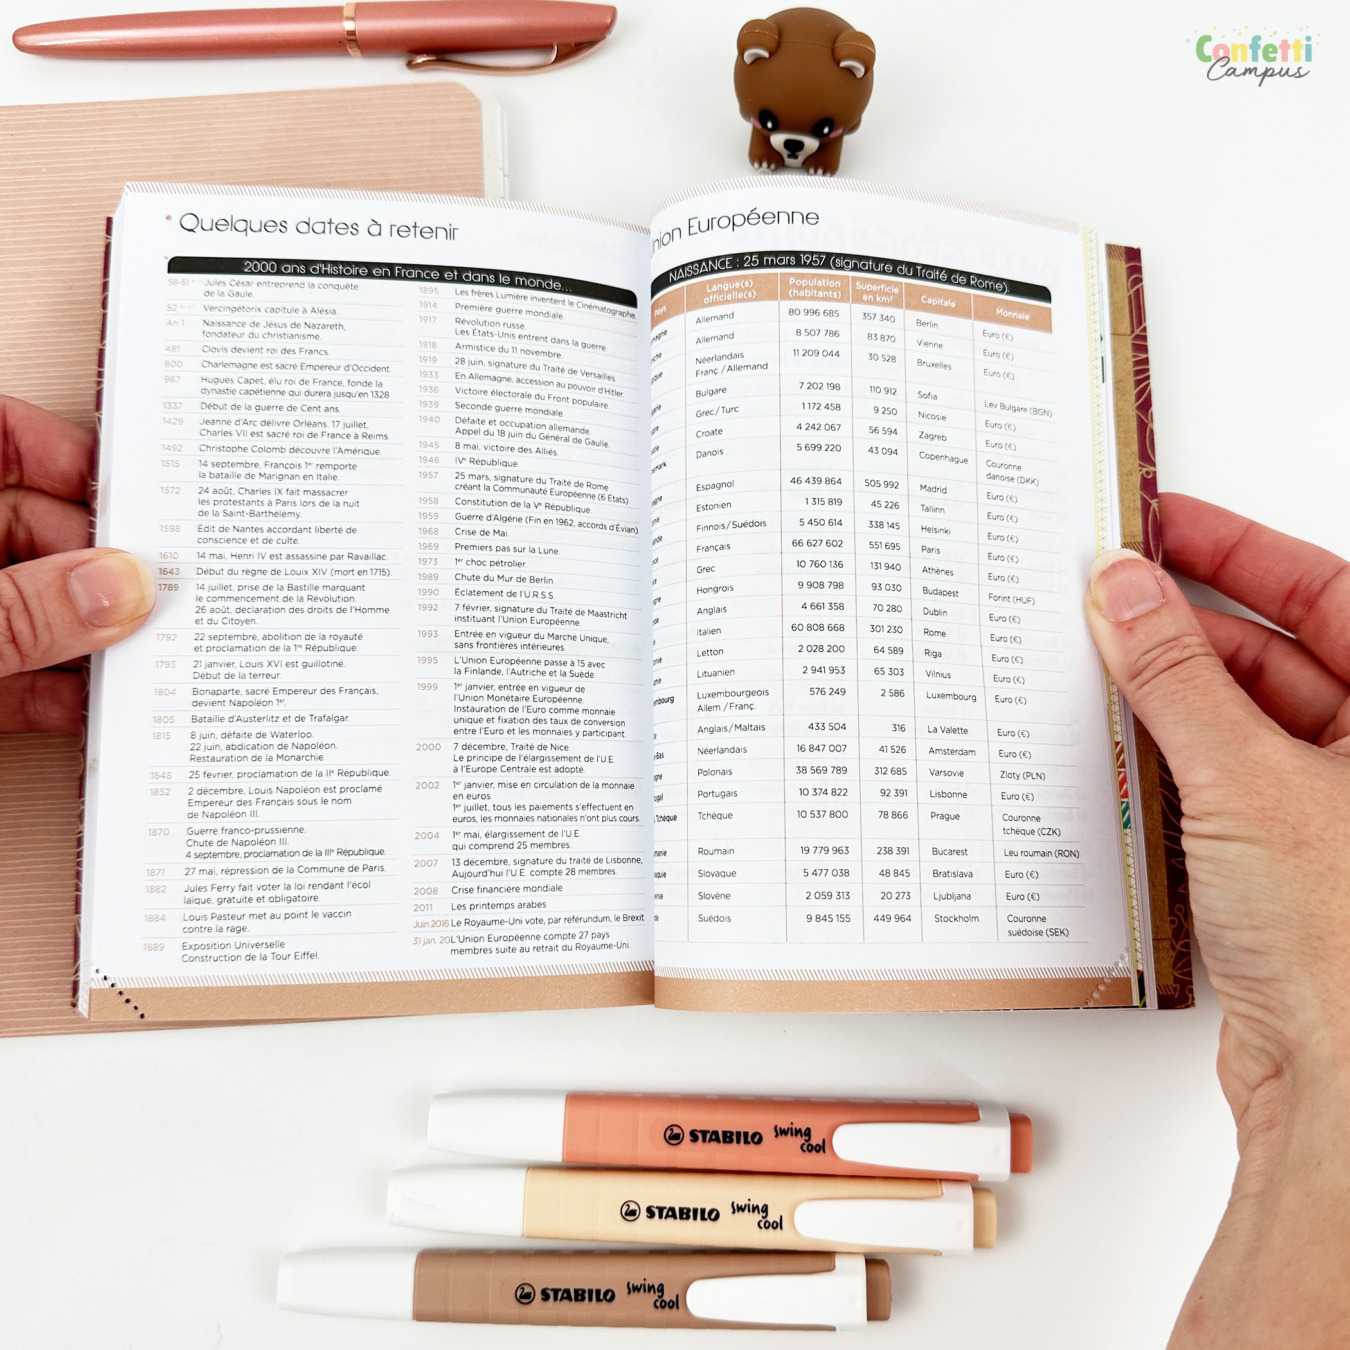 Confetti
Campus
Quelques dates à retenir
2000 ans d'Histoire en France et dans le monde...
58-51 Jules César entreprend la conquête
de la Gaule.
52 Vercingétorix capitule à Alésia.
An 1 Naissance de Jésus de Nazareth,
fondateur du christianisme.
481 Clovis devient roi des Francs.
800 Charlemagne est sacré Empereur d'Occident.
987 Hugues Capet, élu roi de France, fonde la
dynastie capétienne qui durera jusqu'en 1328
1337 Début de la guerre de Cent ans.
1429 Jeanne d'Arc délivre Orléans. 17 juillet,
Charles VII est sacré roi de France à Reims.
1492 Christophe Colomb découvre l'Amérique.
1515 14 septembre, François 1er remporte
la bataille de Marignan en Italie.
1572 24 août, Charles IX fait massacrer
les protestants à Paris lors de la nuit
de la Saint-Barthélemy.
1598 Edit de Nantes accordant liberté de
conscience et de culte.
1610 14 mai, Henri IV est assassiné par Ravaillac.
1643 Début du règne de Louix XIV (mort en 1715).
1789 14 juillet, prise de la Bastille marquant
le commencement de la Révolution.
26 août, déclaration des droits de l'Homme
et du Citoyen.
1792 22 septembre, abolition de la royauté
et proclamation de la 1re République.
1793 21 janvier, Louis XVI est guillotiné.
Début de la terreur.
1804 Bonaparte, sacré Empereur des Français,
devient Napoléon 1er.
1805 Bataille d'Austerlitz et de Trafalgar.
1815 8 juin, défaite de Waterloo.
22 juin, abdication de Napoléon.
Restauration de la Monarchie.
1848 25 février, proclamation de la IIe République.
1852 2 décembre, Louis Napoléon est proclamé
Empereur des Français sous le nom
de Napoléon III.
1870 Guerre franco-prussienne.
Chute de Napoléon III.
4 septembre, proclamation de la IIIe République.
1871 27 mai, répression de la Commune de Paris.
1882 Jules Ferry fait voter la loi rendant l'écol
laïque, gratuite et obligatoire.
1884 Louis Pasteur met au point le vaccin
contre la rage.
1889 Exposition Universelle
Construction de la Tour Eiffel.
1895 Les frères Lumière inventent le Cinématographe.
1914 Première guerre mondiale.
1917 Révolution russe.
Les États-Unis entrent dans la guerre.
1918 Armistice du 11 novembre.
1919 28 juin, signature du Traité de Versailles.
1933 En Allemagne, accession au pouvoir d'Hitler.
1936 Victoire électorale du Front populaire.
1939 Seconde guerre mondiale.
1940 Défaite et occupation allemande.
Appel du 18 juin du Général de Gaulle.
1945 8 mai, victoire des Alliés
1946 IVe République
1957 25 mars, signature du Traité de Rome
créant la Communauté Européenne (6 États)
1958 Constitution de la Ve République.
1959 Guerre d'Algérie (Fin en 1962, accords d'Évian)
1968 Crise de Mai.
1969 Premiers pas sur la Lune.
1973 1er choc pétrolier.
1989 Chute du Mur de Berlin.
1990 Éclatement de l'U.R.S.S.
1992 7 février, signature du Traité de Maastricht
instituant l'Union Européenne.
1993 Entrée en vigueur du Marché Unique,
sans frontières intérieures.
1995 L'Union Européenne passe à 15 avec
la Finlande, l'Autriche et la Suède.
1999 1er janvier, entrée en vigueur de
l'Union Monétaire Européenne.
Instauration de l'Euro comme monnaie
unique et fixation des taux de conversion
entre l'Euro et les monnaies y participant.
2000 7 décembre, Traité de Nice.
Le principe de l'élargissement de l'U.E
à l'Europe Centrale est adopté.
2002 1er janvier, mise en circulation de la monnaie
en euros.
1er juillet, tous les paiements s'effectuent en
euros, les monnaies nationales n'ont plus cours.
2004 1er mai, élargissement de l'U.E.
qui comprend 25 membres.
2007 13 décembre, signature du traité de Lisbonne,
Aujourd'hui l'U.E. compte 28 membres.
2008 Crise financière mondiale
2011 Les printemps arabes
Juin 2016 Le Royaume-Uni vote, par référendum, le Brexit
31 jan. 20 L'Union Européenne compte 27 pays
membres suite au retrait du Royaume-Uni.
Union Européenne
NAISSANCE : 25 mars 1957 (signature du Traité de Rome).
Pays Langue(s) officielle(s) Population (habitants) Superficie en km² Capitale Monnaie
magne Allemand 80 996 685 357 340 Berlin Euro (€)
Allemand 8 507 786 83 870 Vienne Euro (€)
Néerlandais 11 209 044 30 528 Bruxelles Euro (€)
Franç./Allemand
Bulgare 7 202 198 110 912 Sofia Lev Bulgare (BGN)
Grec/Turc 1 172 458 9 250 Nicosie Euro (€)
Croate 4 242 067 56 594 Zagreb Euro (€)
Danois 5 699 220 43 094 Copenhague Couronne
danoise (DKK)
Espagnol 46 439 864 505 992 Madrid Euro (€)
Estonien 1 315 819 45 226 Tallinn Euro (€)
Finnois/Suédois 5 450 614 338 145 Helsinki Euro (€)
Français 66 627 602 551 695 Paris Euro (€)
Grec 10 760 136 131 940 Athènes Euro (€)
Hongrois 9 908 798 93 030 Budapest Forint (HUF)
Anglais 4 661 358 70 280 Dublin Euro (€)
Italien 60 808 668 301 230 Rome Euro (€)
Letton 2 028 200 64 589 Riga Euro (€)
Lituanien 2 941 953 65 303 Vilnius Euro (€)
mbourg Luxembourgeois 576 249 2 586 Luxembourg Euro (€)
Allem./Franç.
Anglais/Maltais 433 504 316 La Valette Euro (€)
-Bas Néerlandais 16 847 007 41 526 Amsterdam Euro (€)
Polonais 38 569 789 312 685 Varsovie Zloty (PLN)
Portugais 10 374 822 92 391 Lisbonne Euro (€)
Tchèque Tchèque 10 537 800 78 866 Prague Couronne
tchèque (CZK)
Roumain 19 779 963 238 391 Bucarest Leu roumain (RON)
Slovaque 5 477 038 48 845 Bratislava Euro (€)
Slovène 2 059 313 20 273 Ljubljana Euro (€)
Suédois 9 845 155 449 964 Stockholm Couronne
suédoise (SEK)
STABILO swing cool
STABILO swing cool
STABILO swing cool